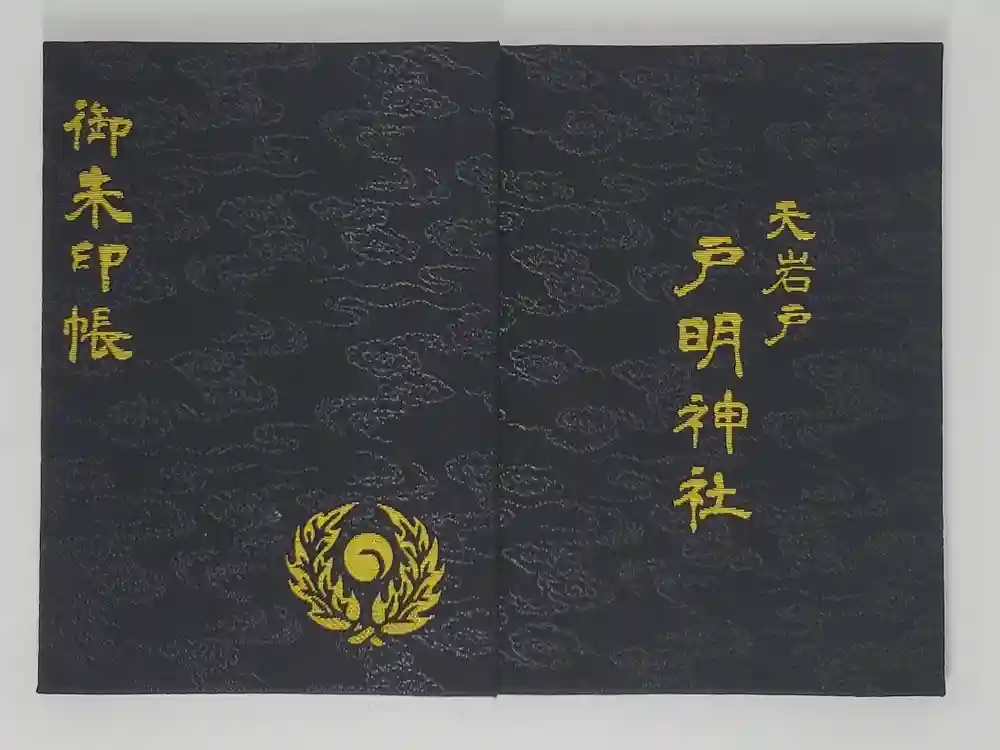 御朱印帳
天岩戸
戸明神社